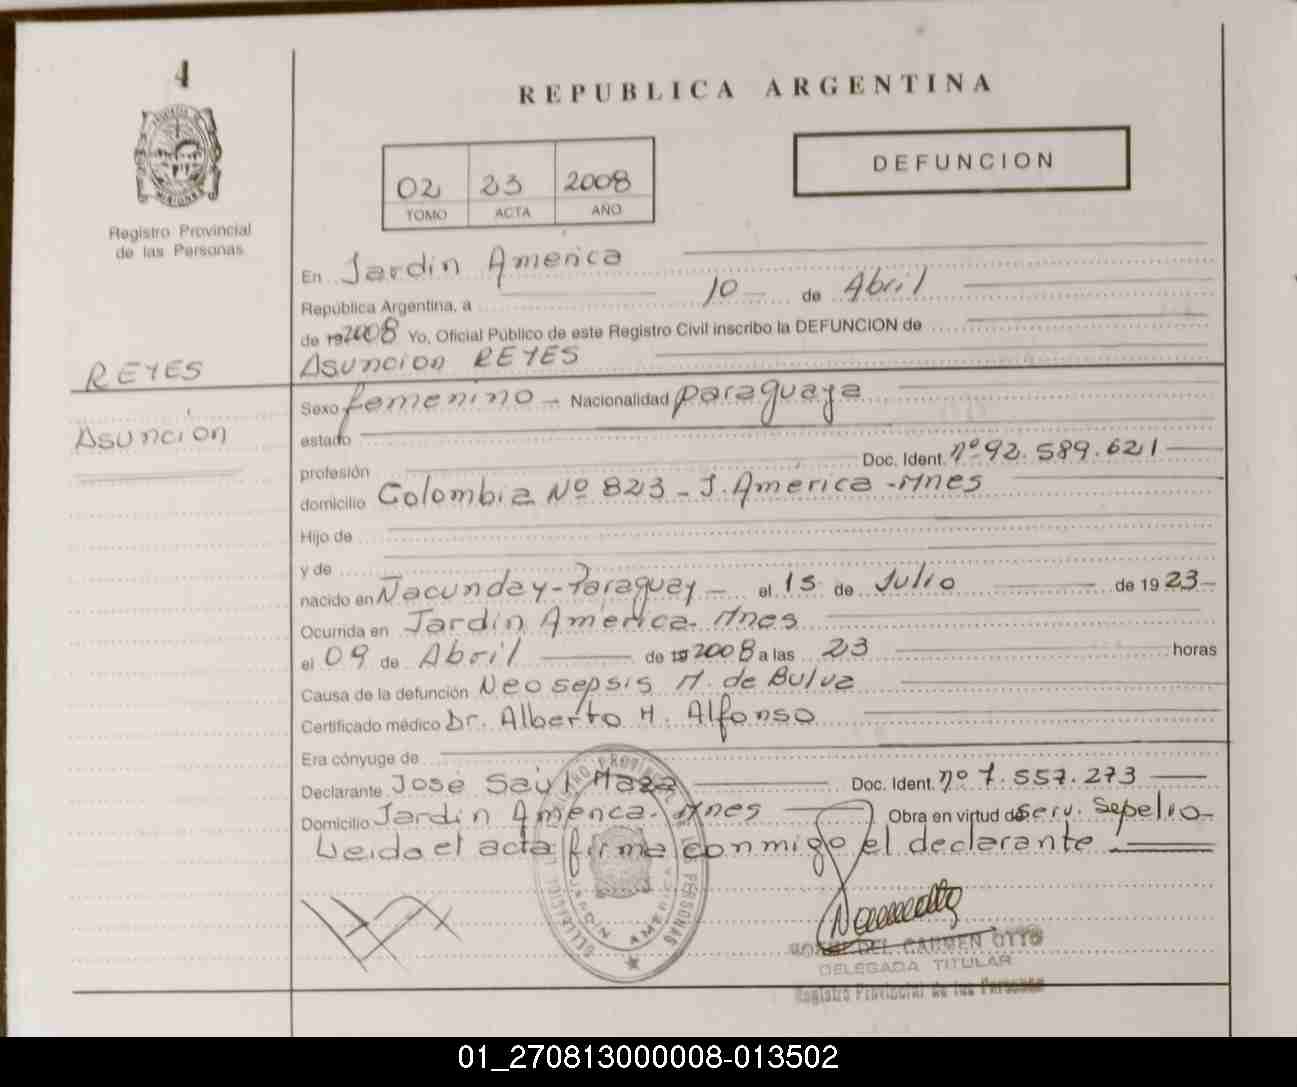 4
REPUBLICA ARGENTINA
DEFUNCION
02 23 2008
TOMO ACTA AÑO
Registro Provincial
de las Personas
En Jardin America
República Argentina, a 10 de Abril
de 192008 Yo, Oficial Público de este Registro Civil inscribo la DEFUNCION de
REYES
Asuncion REYES
Asuncion
Sexo femenino - Nacionalidad paraguaya
estado
profesión Doc. Ident. nº 92.589.621
domicilio Colombia Nº 823 - J. America - Mnes
Hijo de
y de
nacido en Ñacunday - Paraguay - el 15 de Julio de 1923
Ocurrida en Jardin America - Mnes
el 09 de Abril de 192008 a las 23 horas
Causa de la defunción Neosepsis M. de Bulva
Certificado médico Dr. Alberto H. Alfonso
Era cónyuge de
Declarante José Saúl Maza Doc. Ident. nº 7.557.273
Domicilio Jardin America - Mnes Obra en virtud de Serv. Sepelio
Leida el acta firma conmigo el declarante
DEL CARMEN OTTO
DELEGADA TITULAR
Registro Provincial de las Personas
01_270813000008-013502